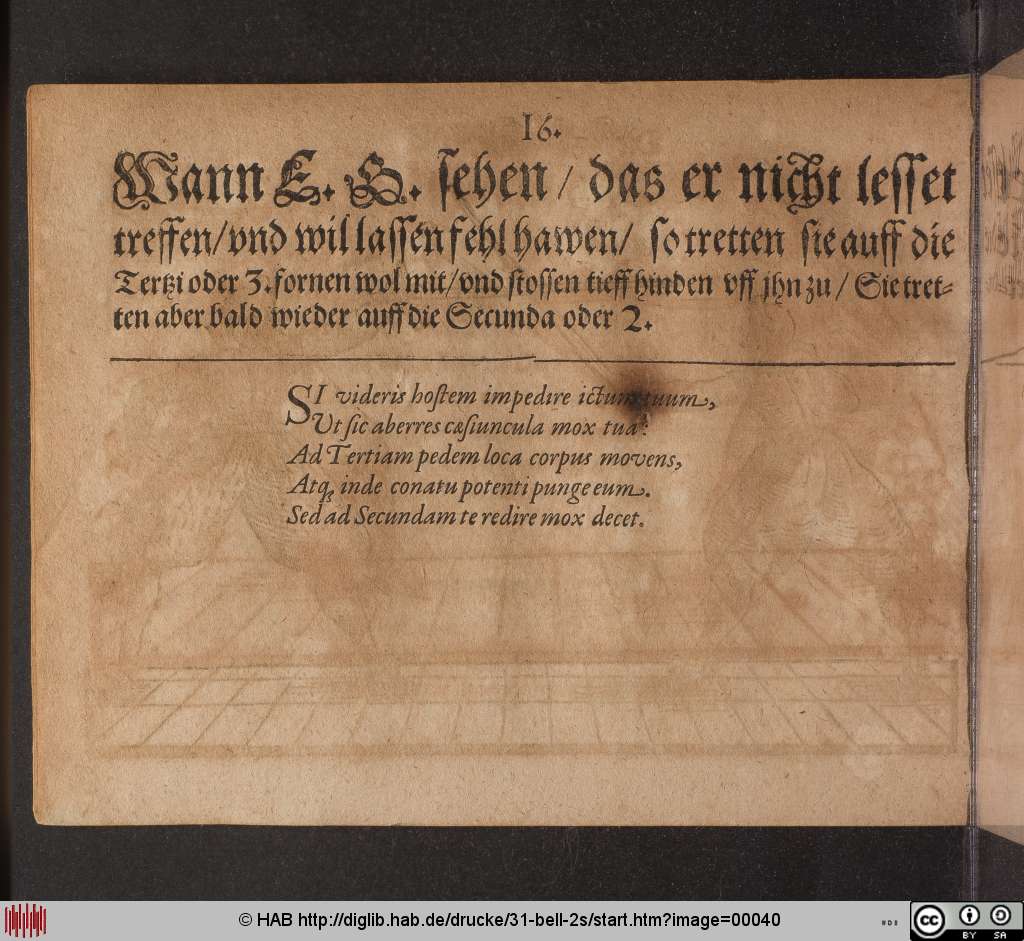 16.
Wann E. G. sehen / das er nicht lesset
treffen / vnd wil lassen fehl hawen / so tretten sie auff die
Tertzi oder 3. fornen wol mit / vnd stossen tieff hinden vff jhn zu / Sie tret⸗
ten aber bald wieder auff die Secunda oder 2.
SI videris hostem impedire ictum tuum,
Ut sic aberres cæsiuncula mox tua:
Ad Tertiam pedem loca corpus movens,
Atq; inde conatu potenti punge eum.
Sed ad Secundam te redire mox decet.
© HAB http://diglib.hab.de/drucke/31-bell-2s/start.htm?image=00040
cc BY SA